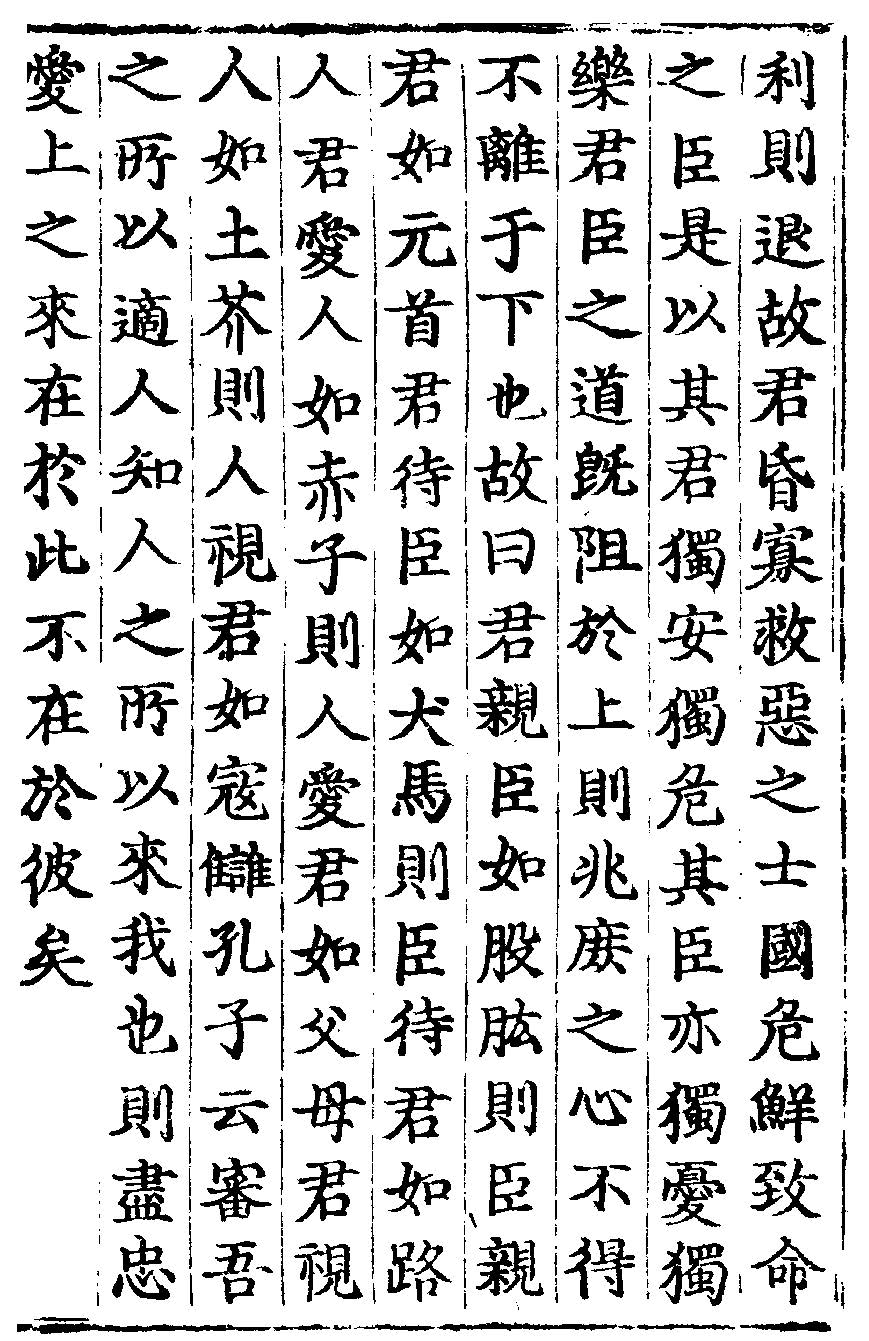 利則退故君昏寡救惡之士國危鮮致命
之臣是以其君獨安獨危其臣亦獨憂獨
樂君臣之道既阻於上則兆庶之心不得
不離于下也故曰君親臣如股肱則臣親
君如元首君待臣如犬馬則臣待君如路
人君愛人如赤子則人愛君如父母君視
人如土芥則人視君如寇讎孔子云審吾
之所以適人知人之所以來我也則盡忠
愛上之來在於此不在於彼矣